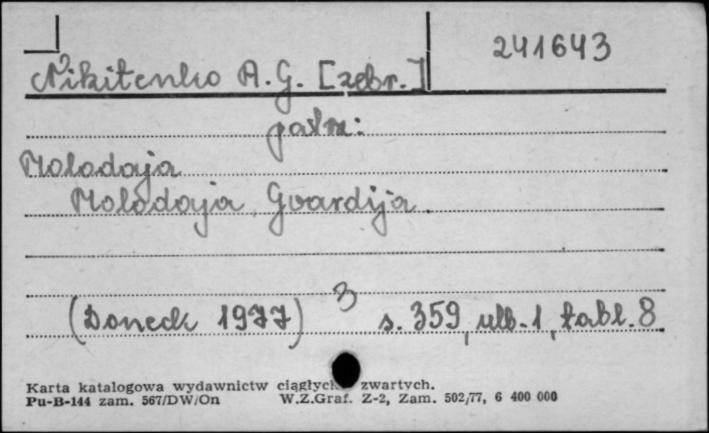 241643
Nikitenko A. G. [zebr.]
patrz:
Molodaja
Molodaja Gvardija.
(Doneck 1977) 3 s. 359, ulb. 1, tabl. 8
Karta katalogowa wydawnictw ciągłych zwartych.
Pu-B-144 zam. 567/DW/On W.Z.Graf. Z-2, Zam. 502/77, 6 400 000